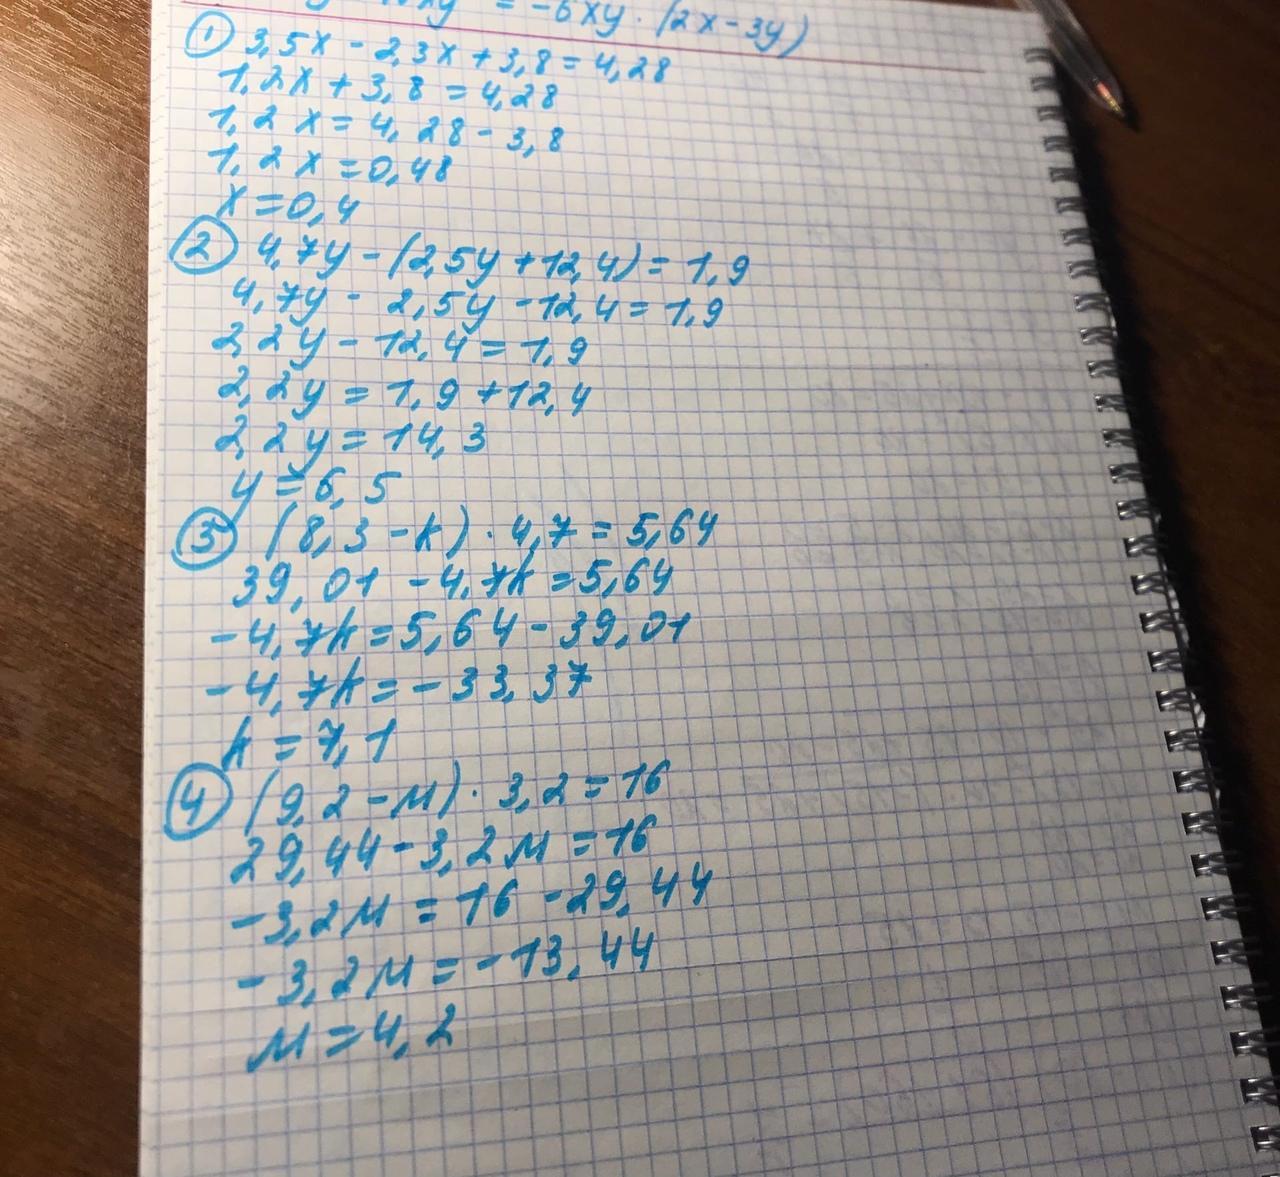 = -6xy · (2x-3y)
① 3,5x - 2,3x + 3,8 = 4,28
1,2x + 3,8 = 4,28
1,2x = 4,28 - 3,8
1,2x = 0,48
x = 0,4
② 4,7y - (2,5y + 12,4) = 1,9
4,7y - 2,5y - 12,4 = 1,9
2,2y - 12,4 = 1,9
2,2y = 1,9 + 12,4
2,2y = 14,3
y = 6,5
③ (8,3 - k) · 4,7 = 5,64
39,01 - 4,7k = 5,64
-4,7k = 5,64 - 39,01
-4,7k = -33,37
k = 7,1
④ (9,2 - м) · 3,2 = 16
29,44 - 3,2м = 16
-3,2м = 16 - 29,44
-3,2м = -13,44
м = 4,2